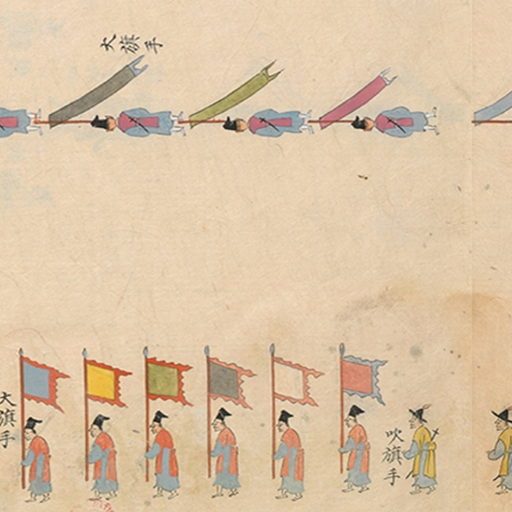 大旗手
大旗手
吹旗手